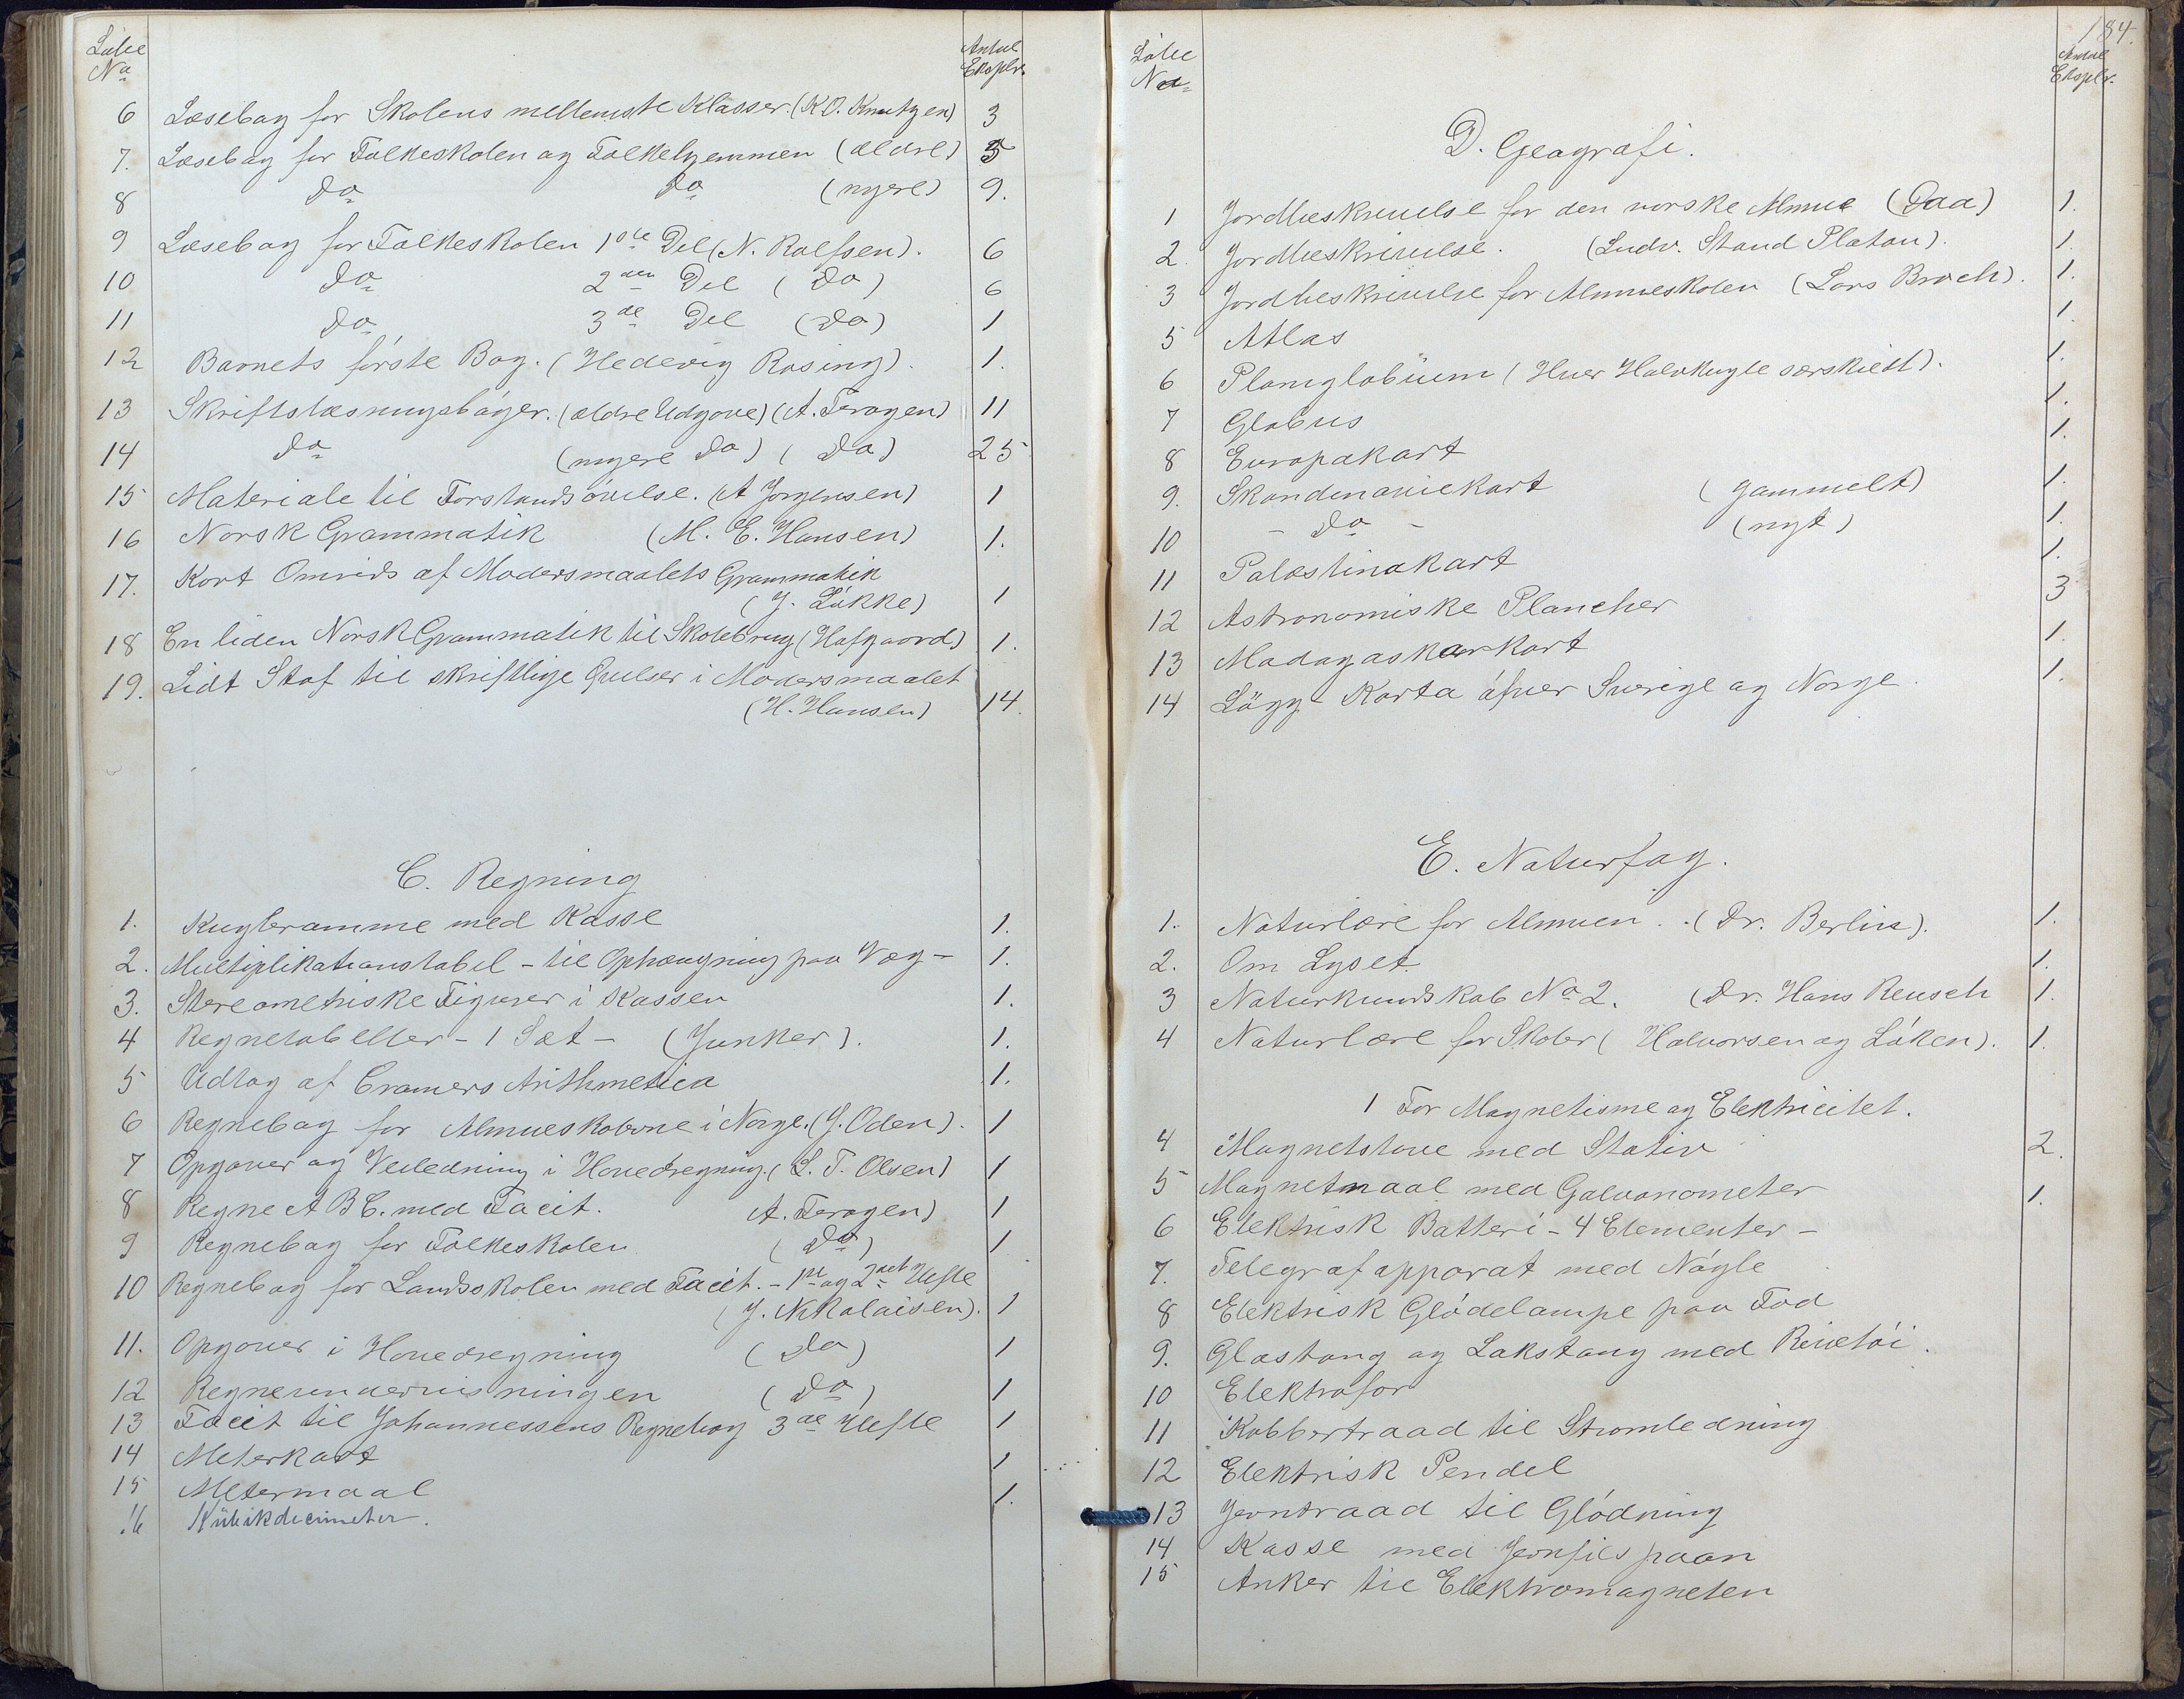 Løbe
No
Antal
Eksplr.
6 Læsebog for Skolens mellemste Klasser. (K.O. Knutzen) 3
7. Læsebog for Folkeskolen og Folkehjemmen (ældre) 5
8 do do (nyere) 9.
9 Læsebog for Folkeskolen 1ste Del (N. Rolfsen). 6
10 do 2den Del (do) 6
11 do 3de Del (do) 1
12 Barnets første Bog. (Hedevig Rosing). 1.
13 Skriftslæsningsbøger. (ældre Udgave) (A. Feragen) 11
14 do (nyere do) (do) 25
15 Materiale til Forstandsøvelse. (A Jorgensen) 1
16 Norsk Grammatik (M. E. Hansen) 1.
17. Kort Omrids af Modersmaalets Grammatik
(J. Løkke) 1
18 En liden Norsk Grammatik til Skolebrug (Hofgaard) 1.
19. Lidt Stof til skriftlige Øvelser i Modersmaalet
(H. Hansen) 14.
C. Regning
1. Kugleramme med Kasse 1.
2. Multiplikationstabel - til Ophængning paa Væg - 1.
3. Stereometriske Figurer i Kassen 1.
4 Regnetabeller - 1 Sæt - (Junker). 1.
5 Udtog af Cramers Arithmetica 1.
6 Regnebog for Almueskolerne i Norge. (J. Oden). 1
7 Opgaver og Veiledning i Hovedregning. (S. T. Olsen) 1
8 Regne A B C. med Facit. A. Feragen) 1
9 Regnebog for Folkeskolen (do) 1
10 Regnebog for Landsskolen med Facit. - 1ste og 2det Hefte
(J. Nikolaisen). 1
11. Opgaver i Hovedregning (do) 1
12 Regneundervisningen (do) 1
13 Facit til Johannessens Regnebog 3de Hefte 1
14 Meterkart 1
15 Metermaal 1.
16 Kubikdecimeter.
184.
Løbe
No
Antal
Eksplr.
D. Geografi.
1 Jordbeskrivelse for den norske Almue (Daa) 1.
2. Jordbeskrivelse. (Ludv. Stoud Platou). 1.
3 Jordbeskrivelse for Almueskolen (Lars Broch). 1.
5 Atlas 1.
6 Planiglobium (Hver Halvkugle særskiedt). 1.
7 Globus 1.
8 Europakart 1.
9. Skandinaviekart (gammelt) 1.
10 - do - (nyt) 1.
11 Palæstinakart 1.
12 Astronomiske Plancher 3
13 Madagaskarkart 1.
14 Lägg Karta öfver Sverige og Norge. 1.
E. Naturfag.
1. Naturlære for Almuen. (Dr. Berlin). 1.
2. Om Lyset. 1.
3 Naturkundskab No 2. (Dr. Hans Reusch 1.
4 Naturlære for Skoler (Halvorsen og Løken). 1.
1 For Magnetisme og Elektricitet.
4 Magnetstave med Stativ 2.
5 Magnetnaal med Galvanometer 1.
6 Elektrisk Batteri - 4 Elementer -
7. Telegrafapparat med Nøgle
8 Elektrisk Glødelampe paa Fod
9. Glasstang og Lakstang med Rivetøi.
10 Elektrofor
11 Kobbertraad til Strømledning
12 Elektrisk Pendel
13 Jerntraad til Glødning
14 Kasse med Jernfilspaan
15 Anker til Elektromagneten